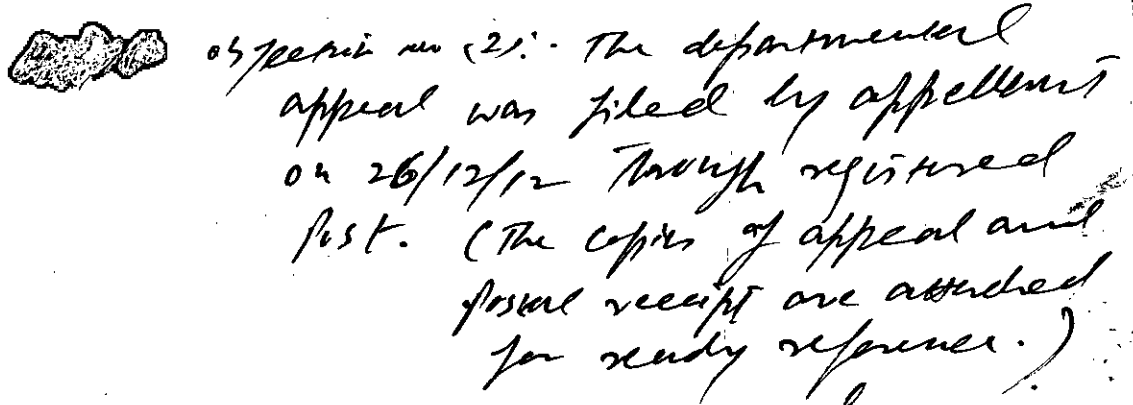 objection no (2):- The departmental
appeal was filed by appellant
on 26/12/12 Through registered
Post. (The copies of appeal and
Postal receipt are attached
for ready reference.)